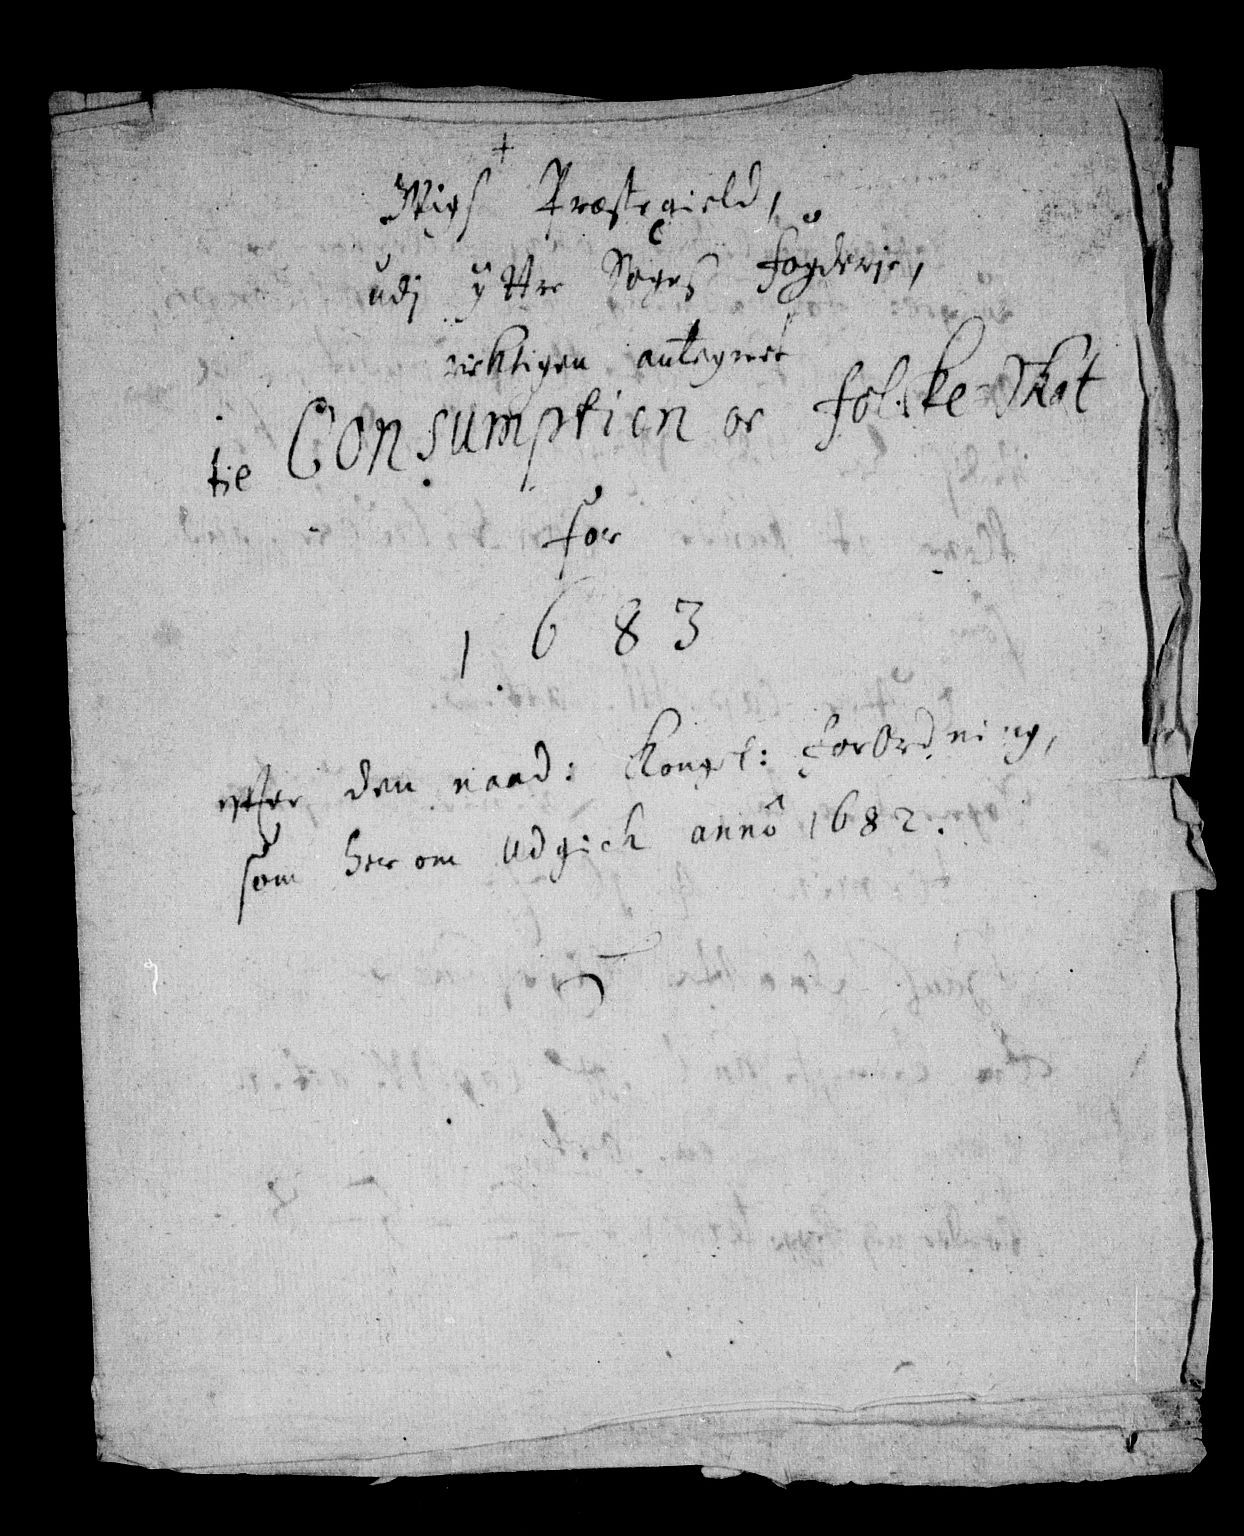 +
Wigs Præstegield,
udj ÿttre Sogns fögderie,
ricktigen antegnet
til Consumption oc folcke-Skat
for
1683
effter den naad: Kongl: forOrdning,
som her om udgick annô 1682.